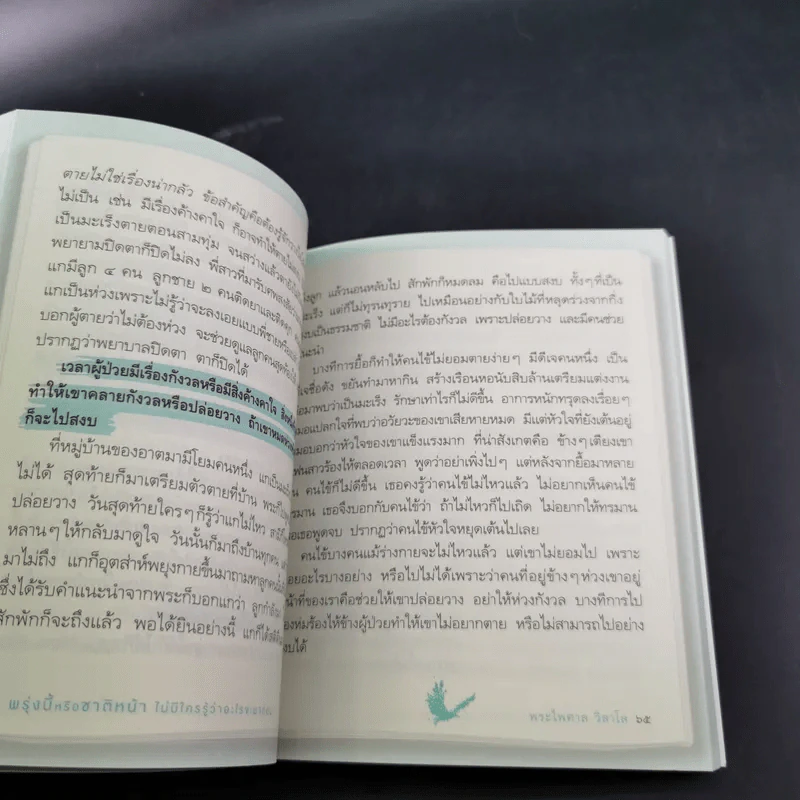 ตายไม่ใช่เรื่องน่ากลัว ข้อสำคัญคือต้องรู้จัก
ไม่เป็น เช่น มีเรื่องค้างคาใจ ก็อาจทำให้ตาย
เป็นมะเร็งตายตอนสามทุ่ม จนสว่างแล้วตา
พยายามปิดตาก็ปิดไม่ลง พี่สาวที่มารับศพ
แกมีลูก ๔ คน ลูกชาย ๒ คนติดยาและติดคุก
แกเป็นห่วงเพราะไม่รู้ว่าจะลงเอยแบบพี่ชาย
บอกผู้ตายว่าไม่ต้องห่วง จะช่วยดูแลลูกคนสุดท้อง
ปรากฏว่าพยาบาลปิดตา ตาก็ปิดได้
เวลาผู้ป่วยมีเรื่องกังวลหรือมีสิ่งค้างคาใจ
ทำให้เขาคลายกังวลหรือปล่อยวาง ถ้าเขา
ก็จะไปสงบ
ที่หมู่บ้านของอาตมามีโยมคนหนึ่ง แกเป็น
ไม่ได้ สุดท้ายก็มาเตรียมตัวตายที่บ้าน พระ
ปล่อยวาง วันสุดท้ายใครๆ ก็รู้ว่าแกไม่ไหว
หลานๆ ให้กลับมาดูใจ วันนั้นก็มาถึงบ้านทุกคน
มาไม่ถึง แกก็อุตส่าห์พยุงกายขึ้นมาถามหาลูกคน
ซึ่งได้รับคำแนะนำจากพระก็บอกแกว่า ลูกกำลัง
สักพักก็จะถึงแล้ว พอได้ยินอย่างนี้ แกก็
พรุ่งนี้หรือชาติหน้า ไม่มีใครรู้ว่าอะไรจะ
ลูก แล้วนอนหลับไป สักพักก็หมดลม คือไปแบบสงบ ทั้งๆ ที่เป็น
แต่ก็ไม่ทุรนทุราย ไปเหมือนอย่างกับใบไม้ที่หลุดร่วงจากกิ่ง
เป็นธรรมชาติ ไม่มีอะไรต้องกังวล เพราะปล่อยวาง และมีคนช่วย
แนะนำ
บางทีการยื้อก็ทำให้คนไข้ไม่ยอมตายง่ายๆ มีตี๋เจคนหนึ่ง เป็น
ชื่อดัง ขยันทำมาหากิน สร้างเรือนหอนับสิบล้านเตรียมแต่งงาน
มาพบว่าเป็นมะเร็ง รักษาเท่าไรก็ไม่ดีขึ้น อาการหนักทรุดลงเรื่อยๆ
แปลกใจที่พบว่าอวัยวะของเขาเสียหายหมด มีแต่หัวใจที่ยังเต้นอยู่
บอกว่าหัวใจของเขาแข็งแรงมาก ที่น่าสังเกตคือ ข้างๆ เตียงเขา
แฟนสาวร้องไห้ตลอดเวลา พูดว่าอย่าเพิ่งไปๆ แต่หลังจากยื้อมาหลาย
คนไข้ก็ไม่ดีขึ้น เธอคงรู้ว่าคนไข้ไม่ไหวแล้ว ไม่อยากเห็นคนไข้
เธอจึงบอกกับคนไข้ว่า ถ้าไม่ไหวก็ไปเถิด ไม่อยากให้ทรมาน
เธอพูดจบ ปรากฏว่าคนไข้หัวใจหยุดเต้นไปเลย
คนไข้บางคนแม้ร่างกายจะไม่ไหวแล้ว แต่เขาไม่ยอมไป เพราะ
อะไรบางอย่าง หรือไปไม่ได้เพราะว่าคนที่อยู่ข้างๆ ห่วงเขาอยู่
หน้าที่ของเราคือช่วยให้เขาปล่อยวาง อย่าให้ห่วงกังวล บางทีการไป
ร้องห่มร้องไห้ข้างผู้ป่วยทำให้เขาไม่อยากตาย หรือไม่สามารถไปอย่าง
สงบได้
พระไพศาล วิสาโล ๖๕